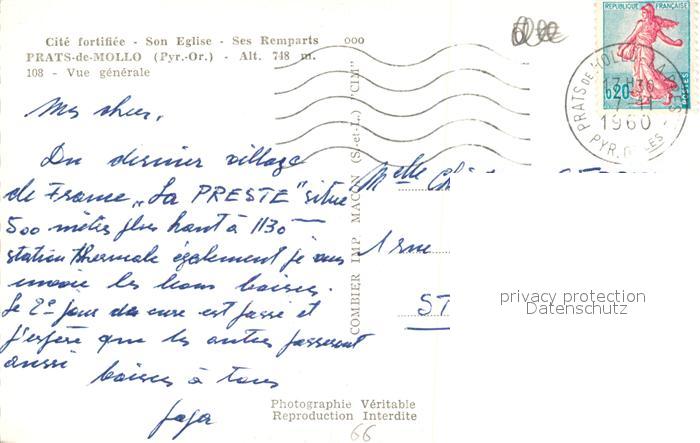 Cité fortifiée - Son Eglise - Ses Remparts ooo
PRATS-de-MOLLO (Pyr.-Or.) - Alt. 748 m.
108 - Vue générale
Mes chers,
Du dernier village
de France "La PRESTE" situé
500 mètres plus haut à 1130
station thermale également je vous
envoie les bons baisers.
Le 2e jour de cure est passé et
j'espère que les autres passeront
aussi
baisers à tous
COMBIER IMP. MACON (S.-et-L.) "CIM"
REPUBLIQUE FRANÇAISE
0,20
POSTES
PRATS DE MOLLO
13H30
1960
Melle
1 rue
ST
privacy protection
Datenschutz
Photographie Véritable
Reproduction Interdite
66